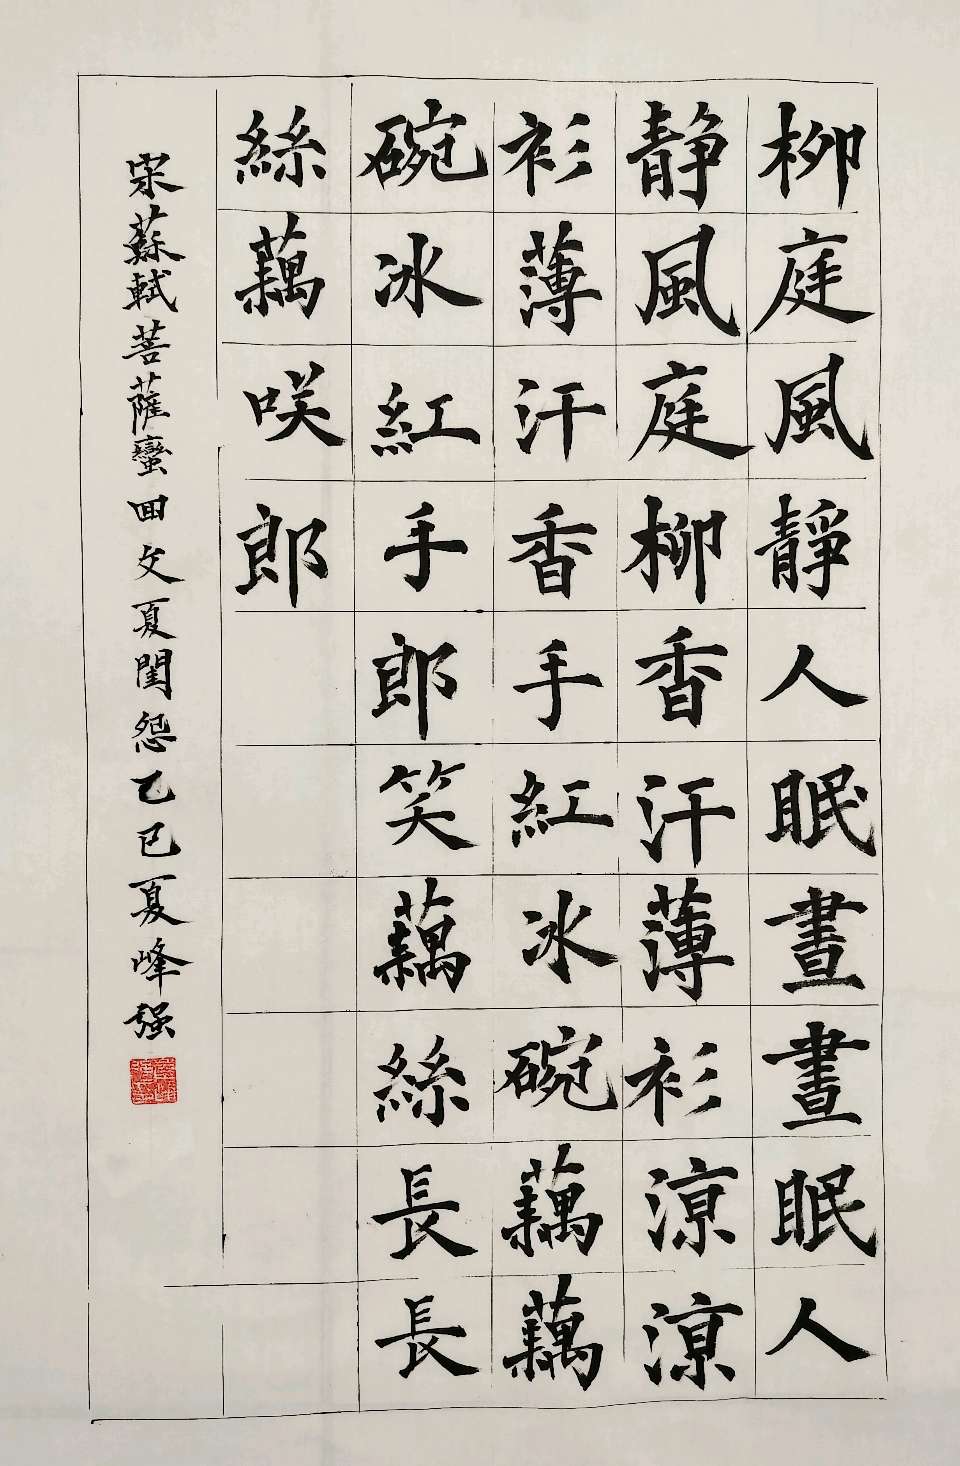 柳庭風靜人眠晝晝眠人
静風庭柳香汗薄衫涼涼
衫薄汗香手紅冰碗藕藕
碗冰紅手郎笑藕絲長長
絲藕咲郎
宋蘇軾菩薩蠻回文夏閨怨乙巳夏峰强